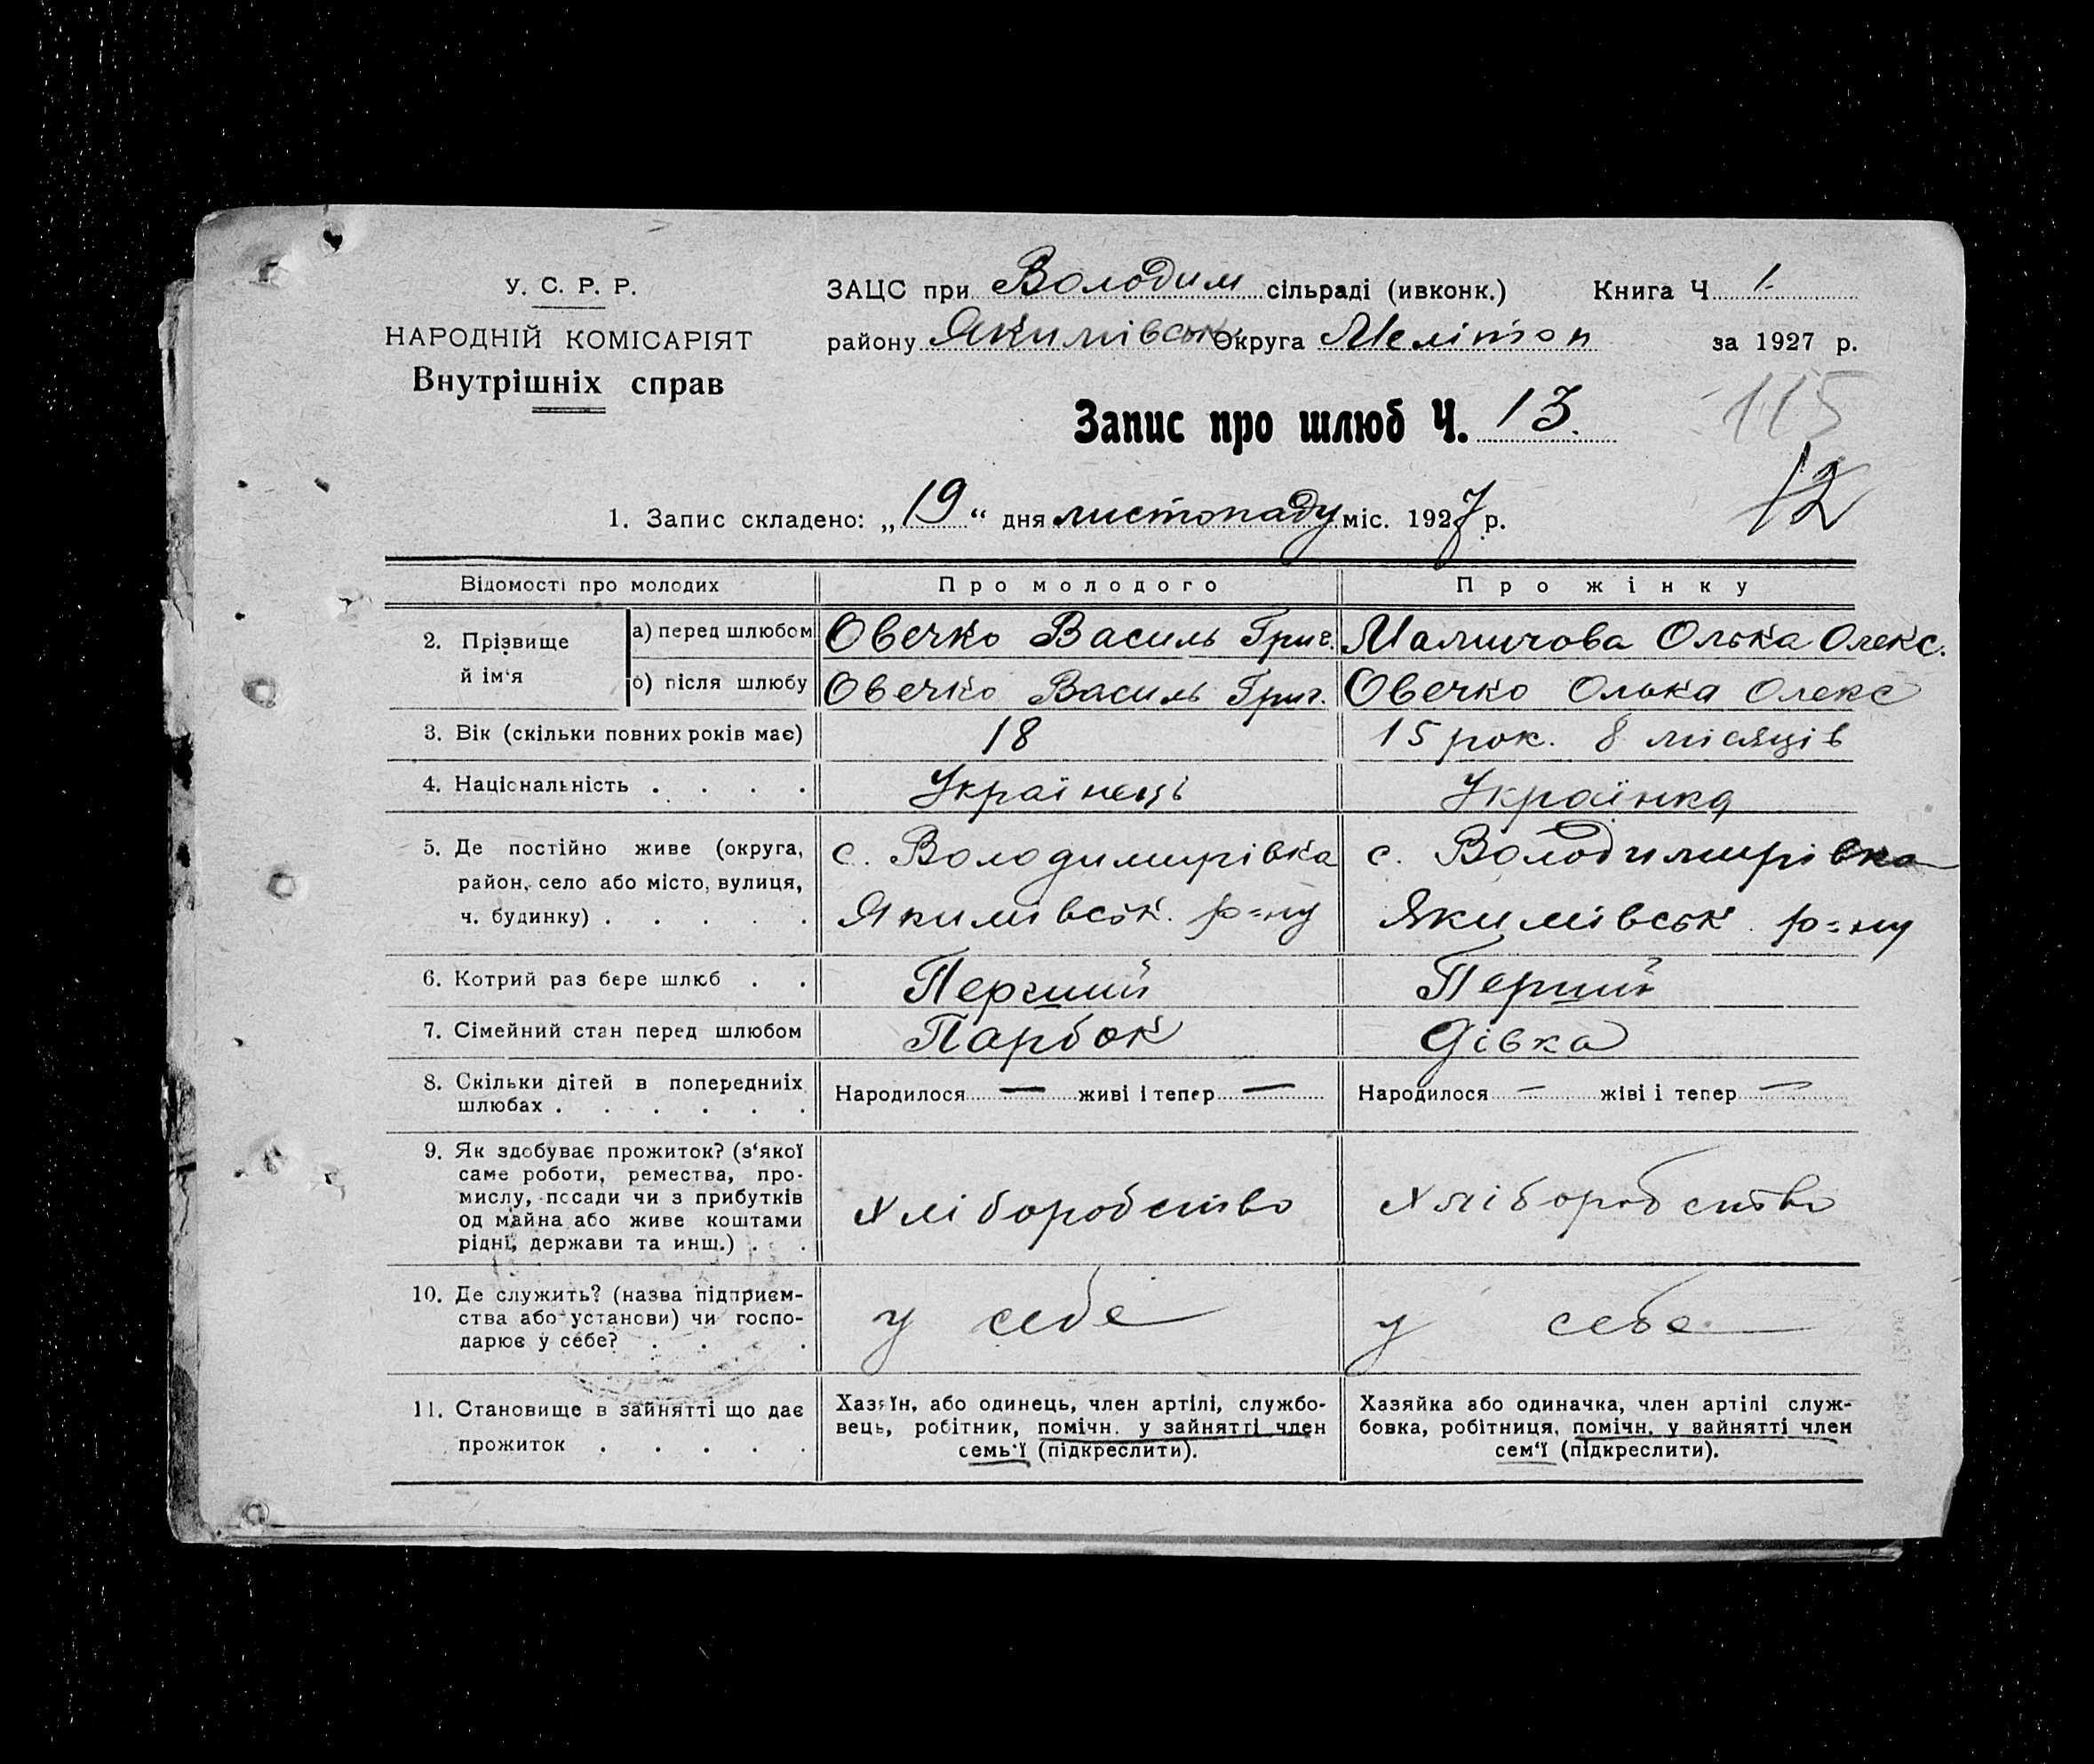 У. С. Р. Р.
НАРОДНІЙ КОМІСАРІЯТ
Внутрішніх справ
ЗАЦС при Володим сільраді (ивконк.) Книга Ч 1.
району Якимівськ Округа Мелітоп за 1927 р.
115
Запис про шлюб Ч. 13.
12
1. Запис складено: „19“ дня листопаду міс. 1927 р.
Відомості про молодих Про молодого Про жінку
2. Прізвище й ім‘я
а) перед шлюбом Овечко Василь Григ. Маличова Олька Олекс.
б) після шлюбу Овечко Василь Григ. Овечко Олька Олекс
3. Вік (скільки повних років має) 18 15 рок. 8 місяців
4. Національність . . . . Українець Українка
5. Де постійно живе (округа, с. Володимирівка с. Володимирівка
район, село або місто, вулиця,
ч. будинку) . . . . . Якимівськ. р=ну Якимівськ. р=ну
6. Котрий раз бере шлюб . . Перший Перший
7. Сімейний стан перед шлюбом Парбок Дівка
8. Скільки дітей в попередниіх Народилося — живі і тепер — Народилося — жіві і тепер —
шлюбах . . . . . .
9. Як здобуває прожиток? (з‘якої
саме роботи, ремества, про-
мислу, посади чи з прибутків
од майна або живе коштами
рідні, держави та инш.) . . хліборобство хліборобство
10. Де служить? (назва підприєм-
ства або установи) чи госпо-
дарює у себе? . . . у себе у себе
11. Становище в зайнятті що дає
прожиток . . . . .
Хазяїн, або одинець, член артілі, службо-
вець, робітник, помічн. у зайнятті член
семь‘ї (підкреслити).
Хазяйка або одиначка, член артілі служ-
бовка, робітниця, помічн. у зайнятті член
сем‘ї (підкреслити).